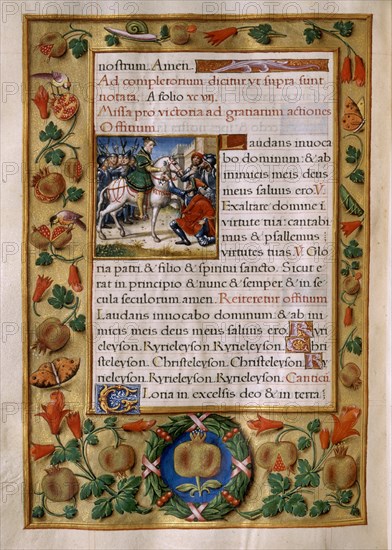 nostrum. Amen.
Ad completorium dicitur vt supra sunt
notata. A folio xc vij.
Missa pro victoria ad gratiarum actiones
Offitium.
Laudans inuoca
bo dominum: & ab
inimicis meis deus
meus saluus ero. V.
Exaltare domine i
virtute tua: cantabi
mus & psallemus
virtutes tuas. V. Glo
ria patri. & filio & spiritui sancto. Sicut e
rat in principio & nunc & semper & in se
cula seculorum amen. Reiteretur offitium
Laudans inuocabo dominum: & ab ini
micis meis deus meus saluus ero. Kyri
eleyson. Kyrieleyson. Kyrieleyson. Chri
steleyson. Christeleyson. Christeleyson. Ky
rieleyson. Kyrieleyson. Kyrieleyson. Cantici
Gloria in excelsis deo & in terra